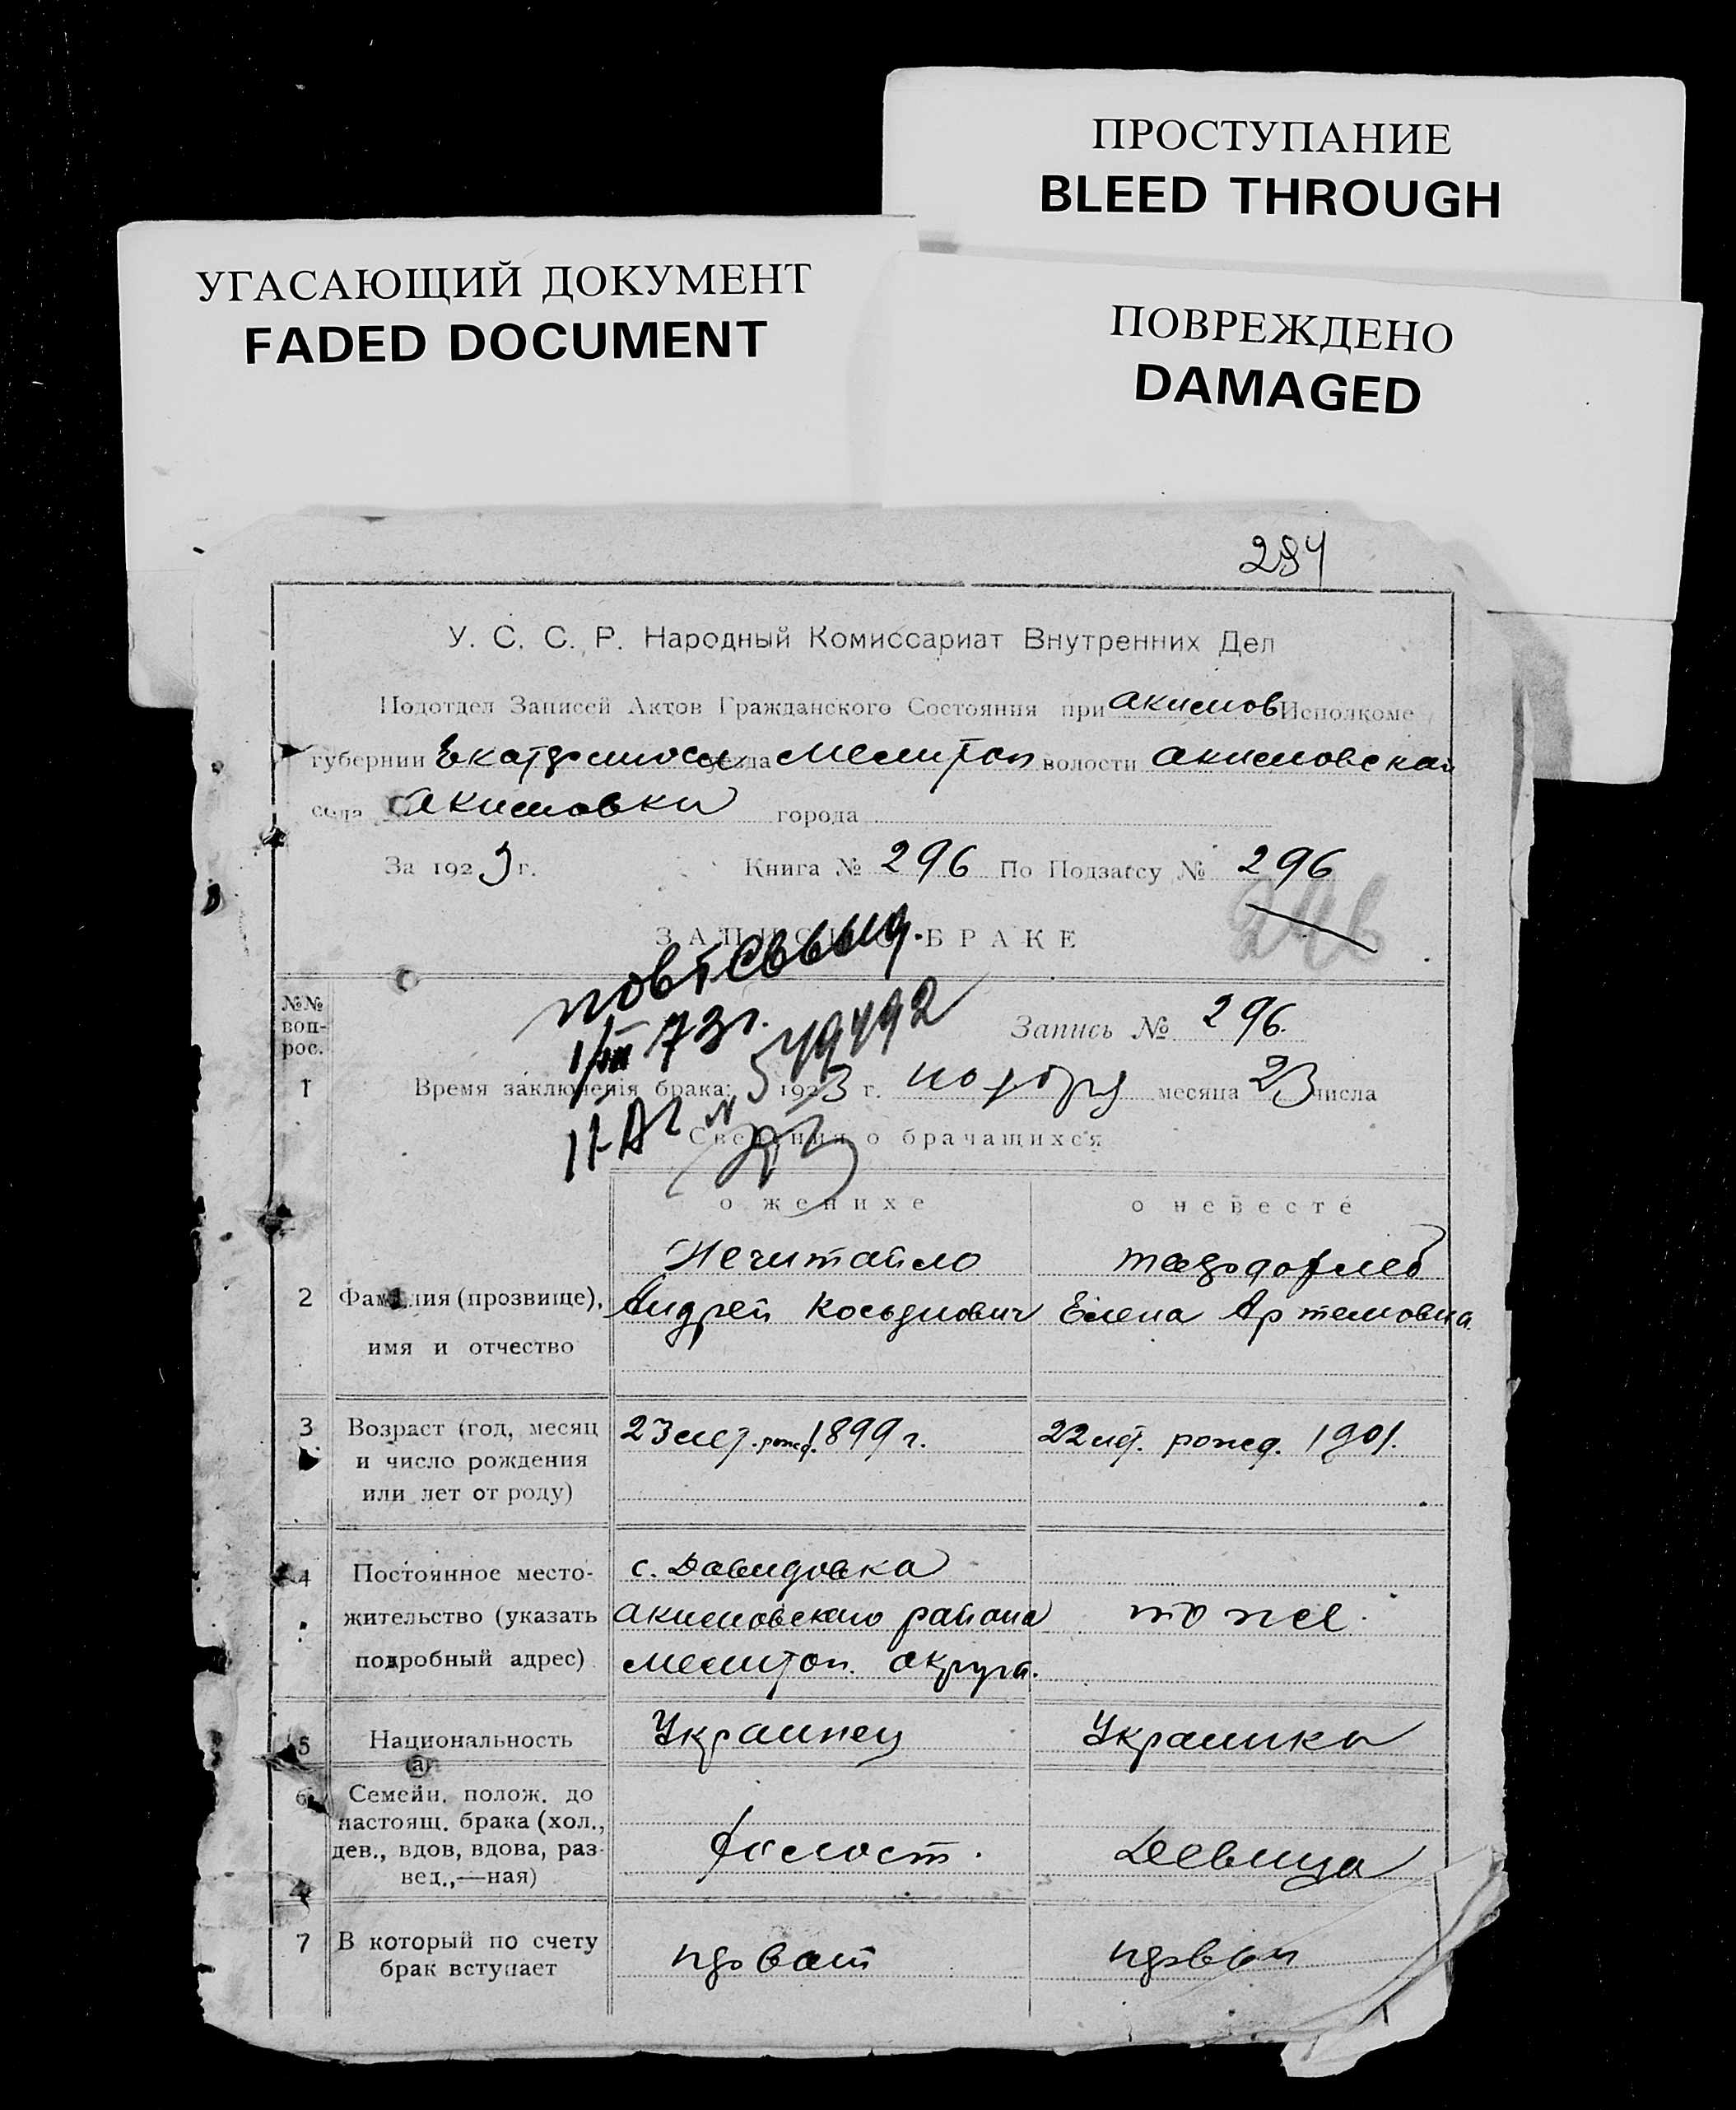 ПРОСТУПАНИЕ
BLEED THROUGH
УГАСАЮЩИЙ ДОКУМЕНТ
FADED DOCUMENT
ПОВРЕЖДЕНО
DAMAGED
У. С. С. Р. Народный Комиссариат Внутренних Дел
Подотдел Записей Актов Гражданского Состояния при Акимов Исполкоме
губернии уезда Мелитоп волости Акимовская
села Акимовки города
За 1923 г. Книга № 296 По Подзагсу № 296
246
ЗАПИСЬ О БРАКЕ
повт свв выд.
1/III 73 г.
№№ воп-рос.
Запись № 296.
1 Время заключенія брака: 1923 г. ноября месяца 23 числа
Сведения о брачащихся
о женихе о невесте
Нечитайло
2 Фамилия (прозвище), Андрей Елена Артемовна
имя и отчество
3 Возраст (год, месяц 23 лет. рожд. 1899 г. 22 лет. рожд. 1901.
и число рождения
или лет от роду)
с. Давидовка
4 Постоянное место-
жительство (указать Акимовского района то же.
подробный адрес) Мелитоп. округа.
5 Национальность Украинец Украинка
6 Семейн. полож. до
настоящ. брака (хол.,
дев., вдов, вдова, раз- Холост. Девица
вед.,—ная)
7 В который по счету первый первый
брак вступает